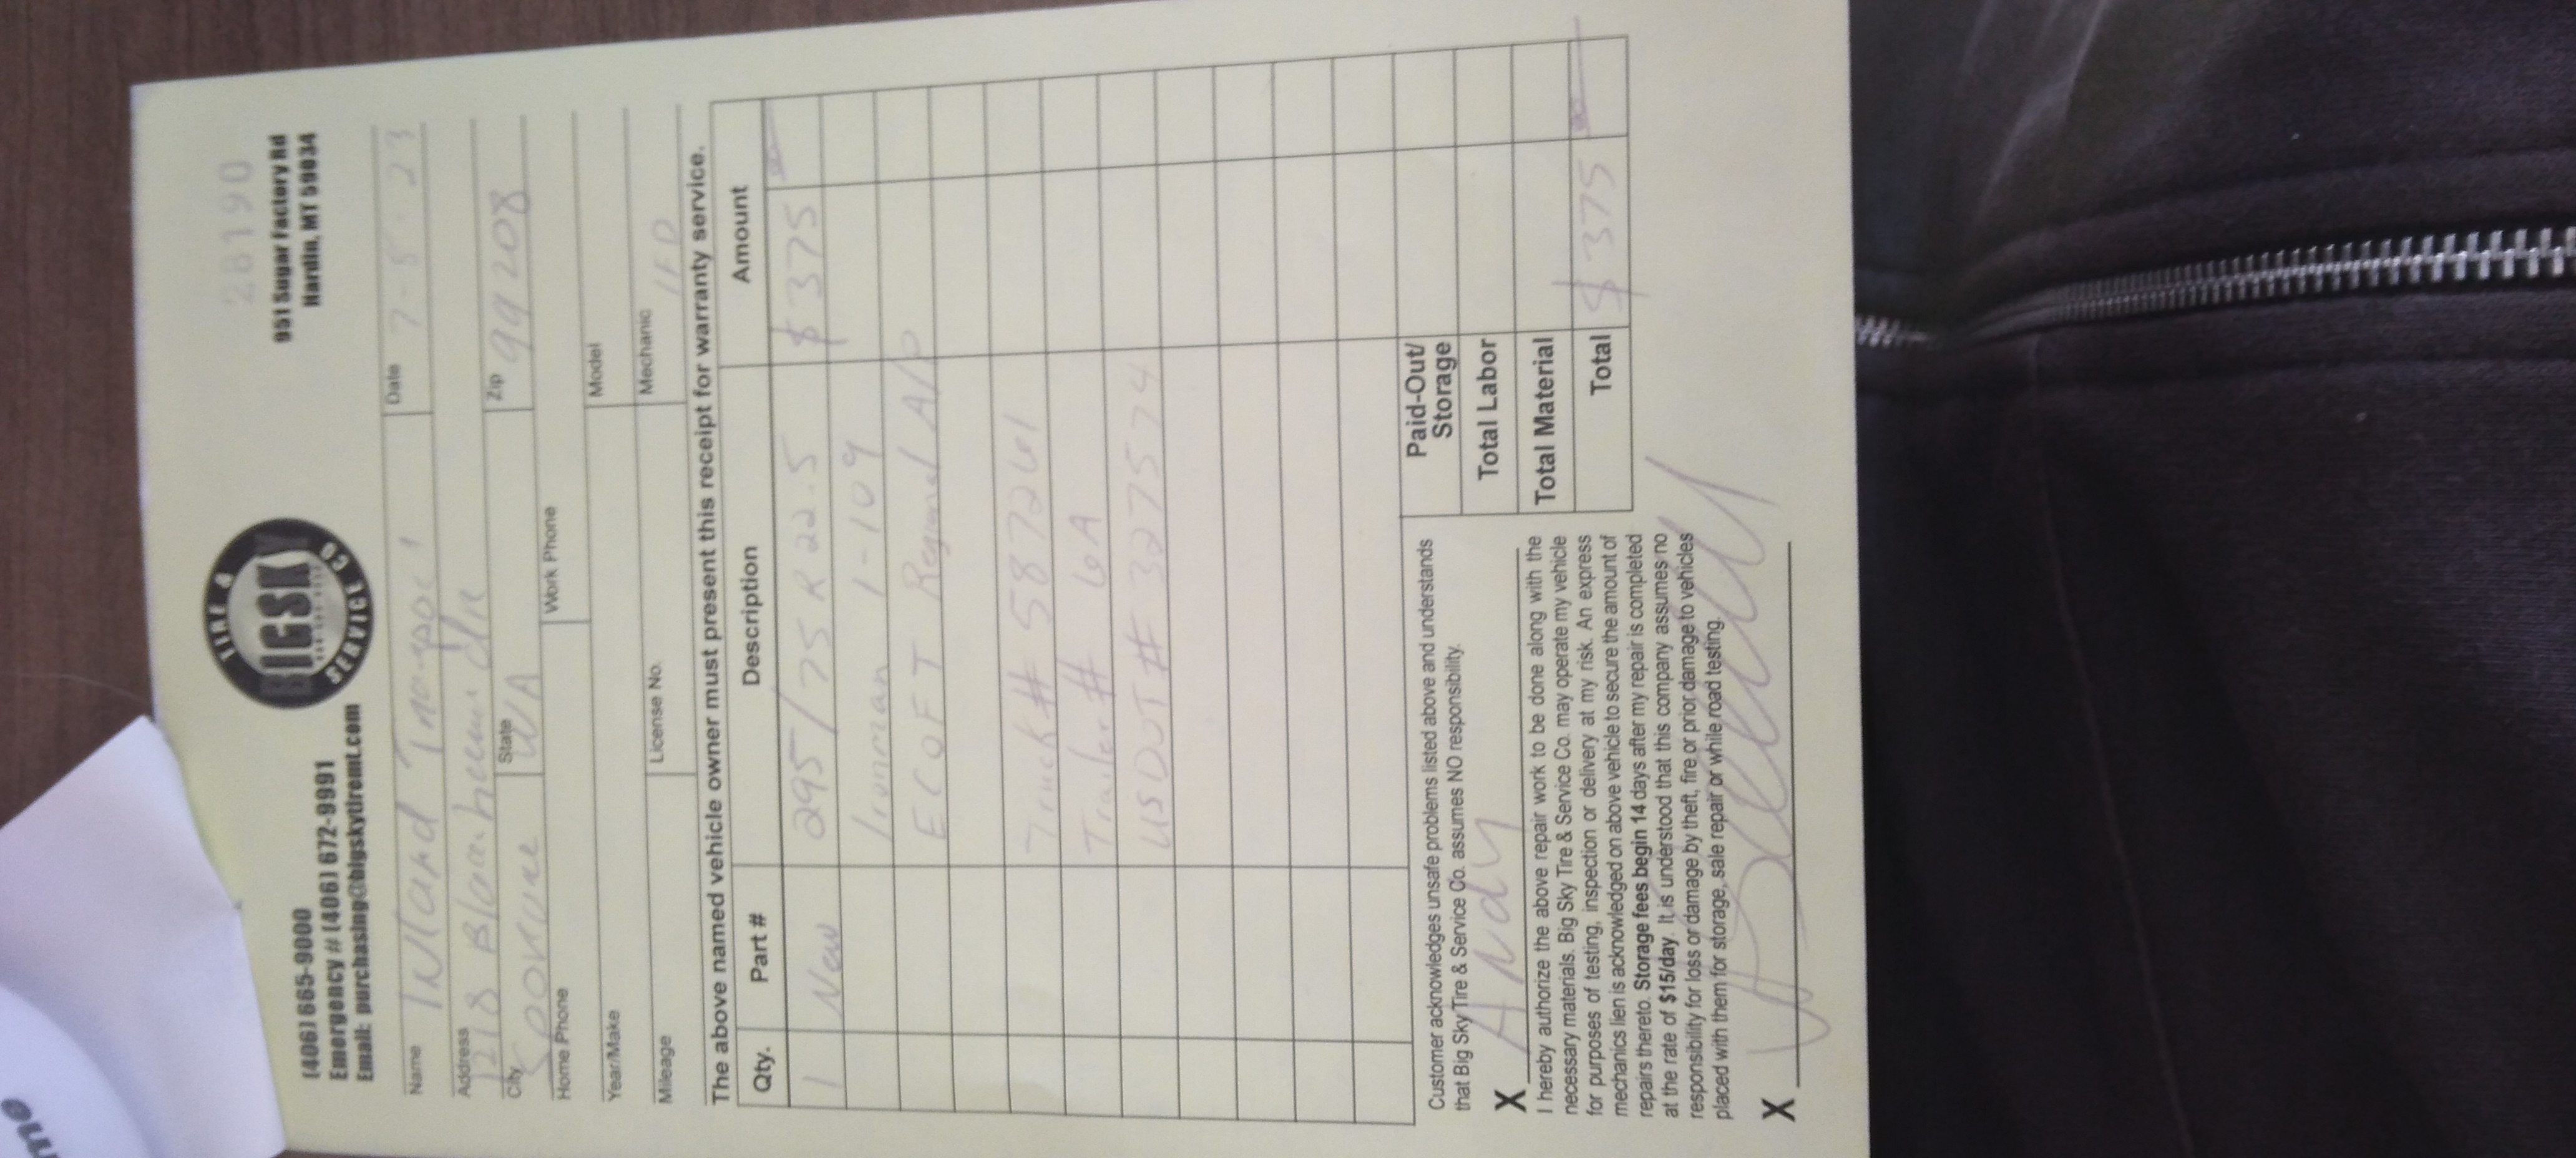 me
TIRE &
BIG SKY
SERVICE CO
28190
(406) 665-9000
Emergency # (406) 672-9991
Email: purchasing@bigskytiremt.com
951 Sugar Factory Rd
Hardin, MT 59034
Name Inland Transport Date 7-5-23
Address
1218 dr
City Spokane State WA Zip 99208
Home Phone Work Phone
Year/Make Model
Mileage License No. Mechanic
The above named vehicle owner must present this receipt for warranty service.
Qty. Part # Description Amount
1 New 295/75 R 22.5 $375
Ironman I-109
ECOFT Regional A/P
Truck # 587261
Trailer # 6A
USDOT # 327574
Customer acknowledges unsafe problems listed above and understands
that Big Sky Tire & Service Co. assumes NO responsibility.
X Andy
I hereby authorize the above repair work to be done along with the
necessary materials. Big Sky Tire & Service Co. may operate my vehicle
for purposes of testing, inspection or delivery at my risk. An express
mechanics lien is acknowledged on above vehicle to secure the amount of
repairs thereto. Storage fees begin 14 days after my repair is completed
at the rate of $15/day. It is understood that this company assumes no
responsibility for loss or damage by theft, fire or prior damage to vehicles
placed with them for storage, sale repair or while road testing.
X
Paid-Out/
Storage
Total Labor
Total Material
Total $375